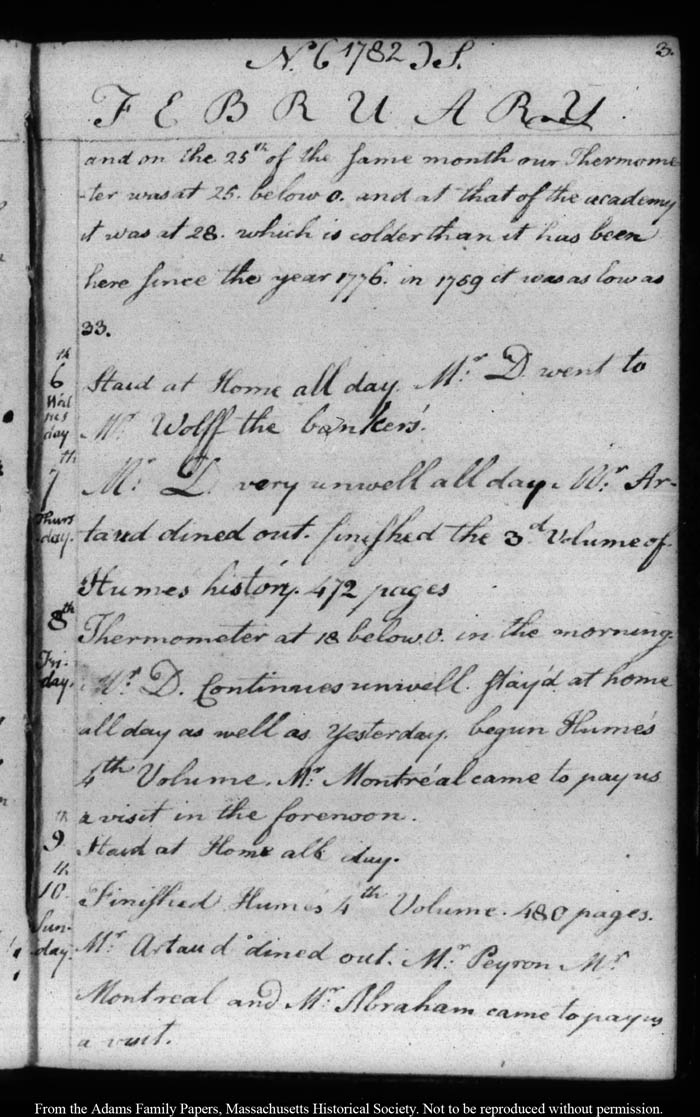 N. (1782) S. 3.
FEBRUARY
and on the 25th of the same month our Thermome
-ter was at 25. below 0. and at that of the academy
it was at 28. which is colder than it has been
here since the year 1776. in 1759 it was as low as
33.
6th Wednesday Staid at Home all day. Mr. D. went to
Mr. Wolff the bankers'.
7th Thursday. Mr. D. very unwell all day. Mr. Ar-
taud dined out. finished the 3d. Volume of
Humes history. 472 pages
8th Friday. Thermometer at 18 below 0. in the morning.
Mr. D. Continues unwell. stay'd at home
all day as well as Yesterday. begun Hume's
4th Volume. Mr. Montréal came to pay us
a visit in the forenoon.
9th Staid at Home all day.
10th Sunday. Finished Hume's 4th Volume. 480 pages.
Mr. Artaud dined out. Mr. Peyron Mr.
Montreal and Mr. Abraham came to pay us
a visit.
From the Adams Family Papers, Massachusetts Historical Society. Not to be reproduced without permission.